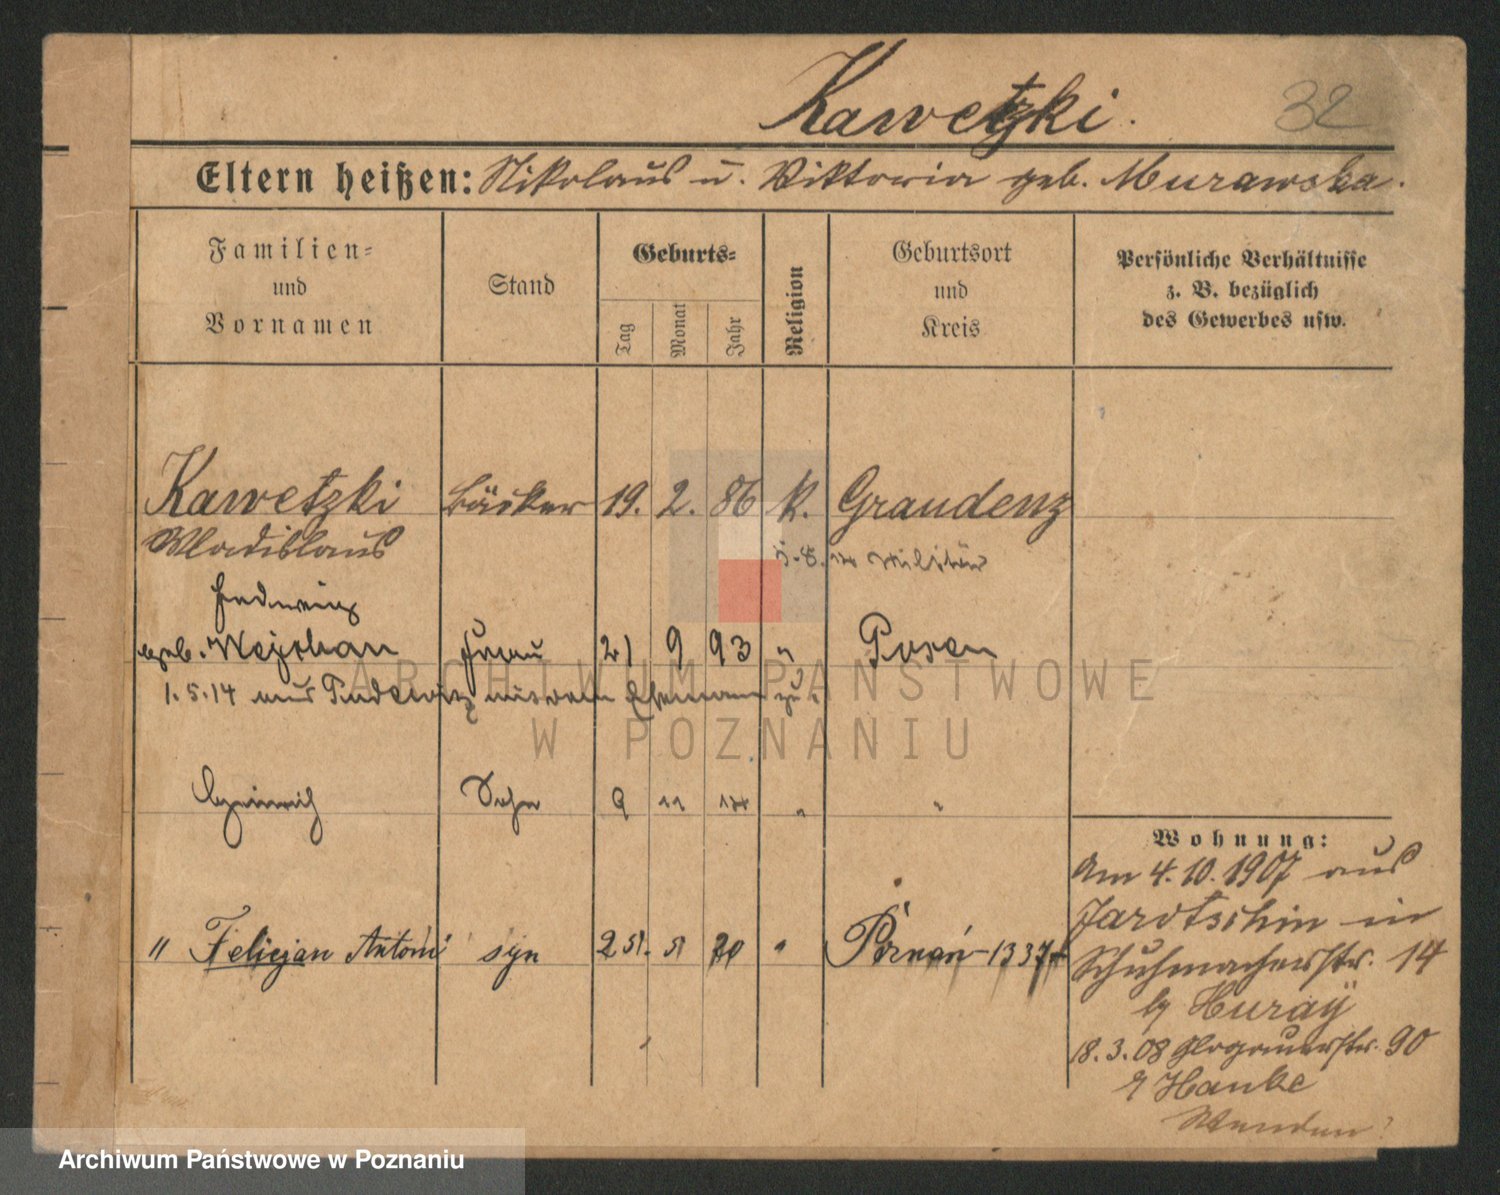 Kawetzki.
32
Eltern heißen: Nikolaus u. Viktoria geb. Murawska.
Familien- und Vornamen
Stand
Geburts-
Tag
Monat
Jahr
Religion
Geburtsort und Kreis
Persönliche Verhältnisse z. B. bezüglich des Gewerbes usw.
Kawetzki Bäcker 19. 2. 86 k. Graudenz
Wladislaus
Militär
Hedwig
geb. Frau 21 9 93 " Posen
1.5.14 aus Pudewitz mit dem Ehemann zu
Heinrich Sohn 9 11 14 " "
" Felicjan Antoni syn 25. 5 20 " Poznań-1337
Wohnung:
Am 4.10.1907 aus
Jarotschin in
Schuhmacherstr. 14
18.3.08 Glogauerstr. 90
Hanke
ARCHIWUM PAŃSTWOWE
W POZNANIU
Archiwum Państwowe w Poznaniu